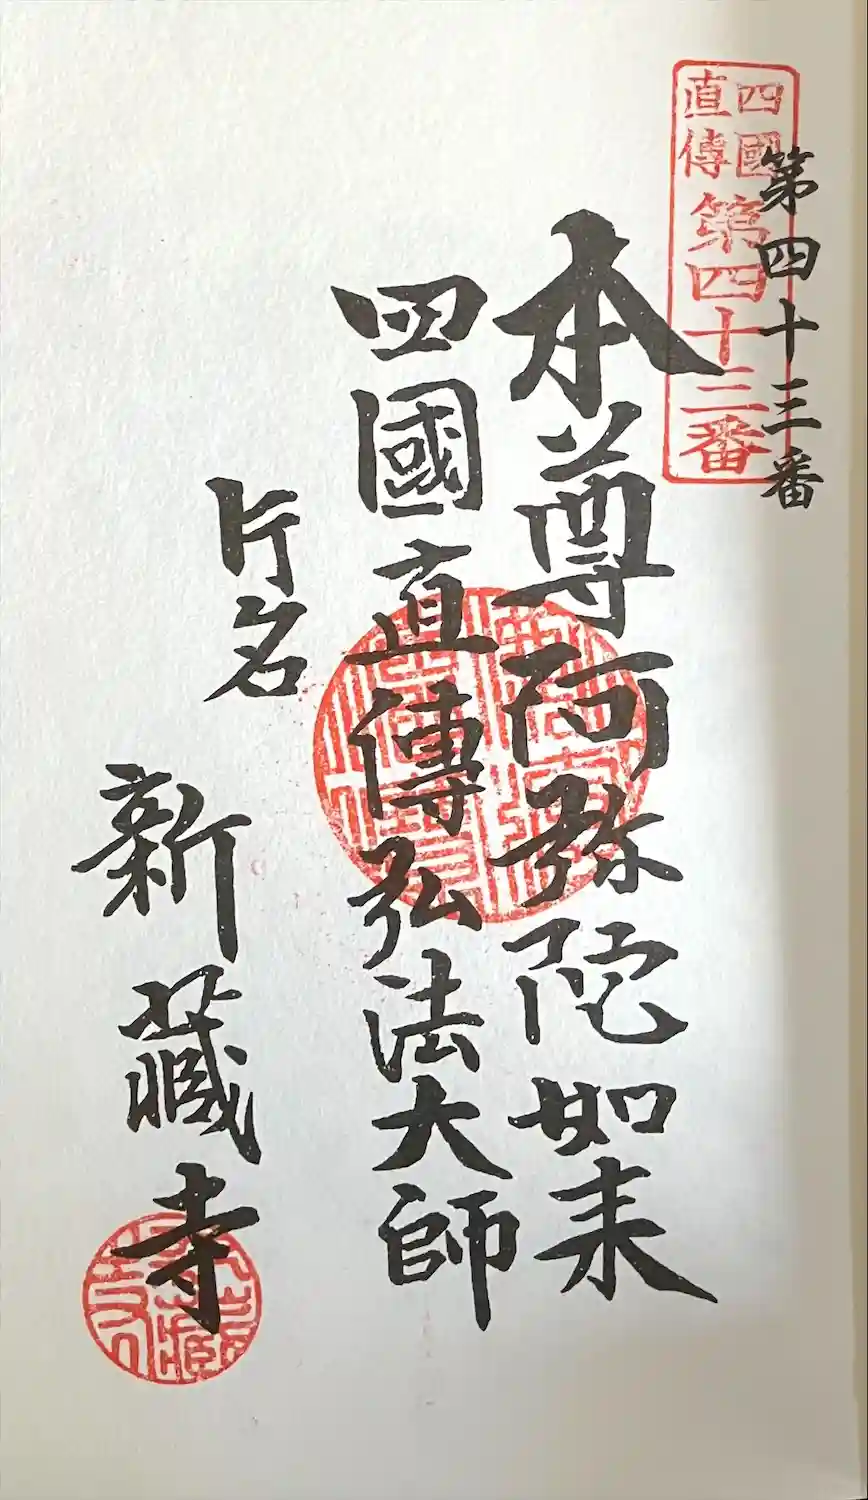 四國
直傳
第四十三番
第四十三番
本尊阿弥陀如来
四國直傳弘法大師
片名
新蔵寺